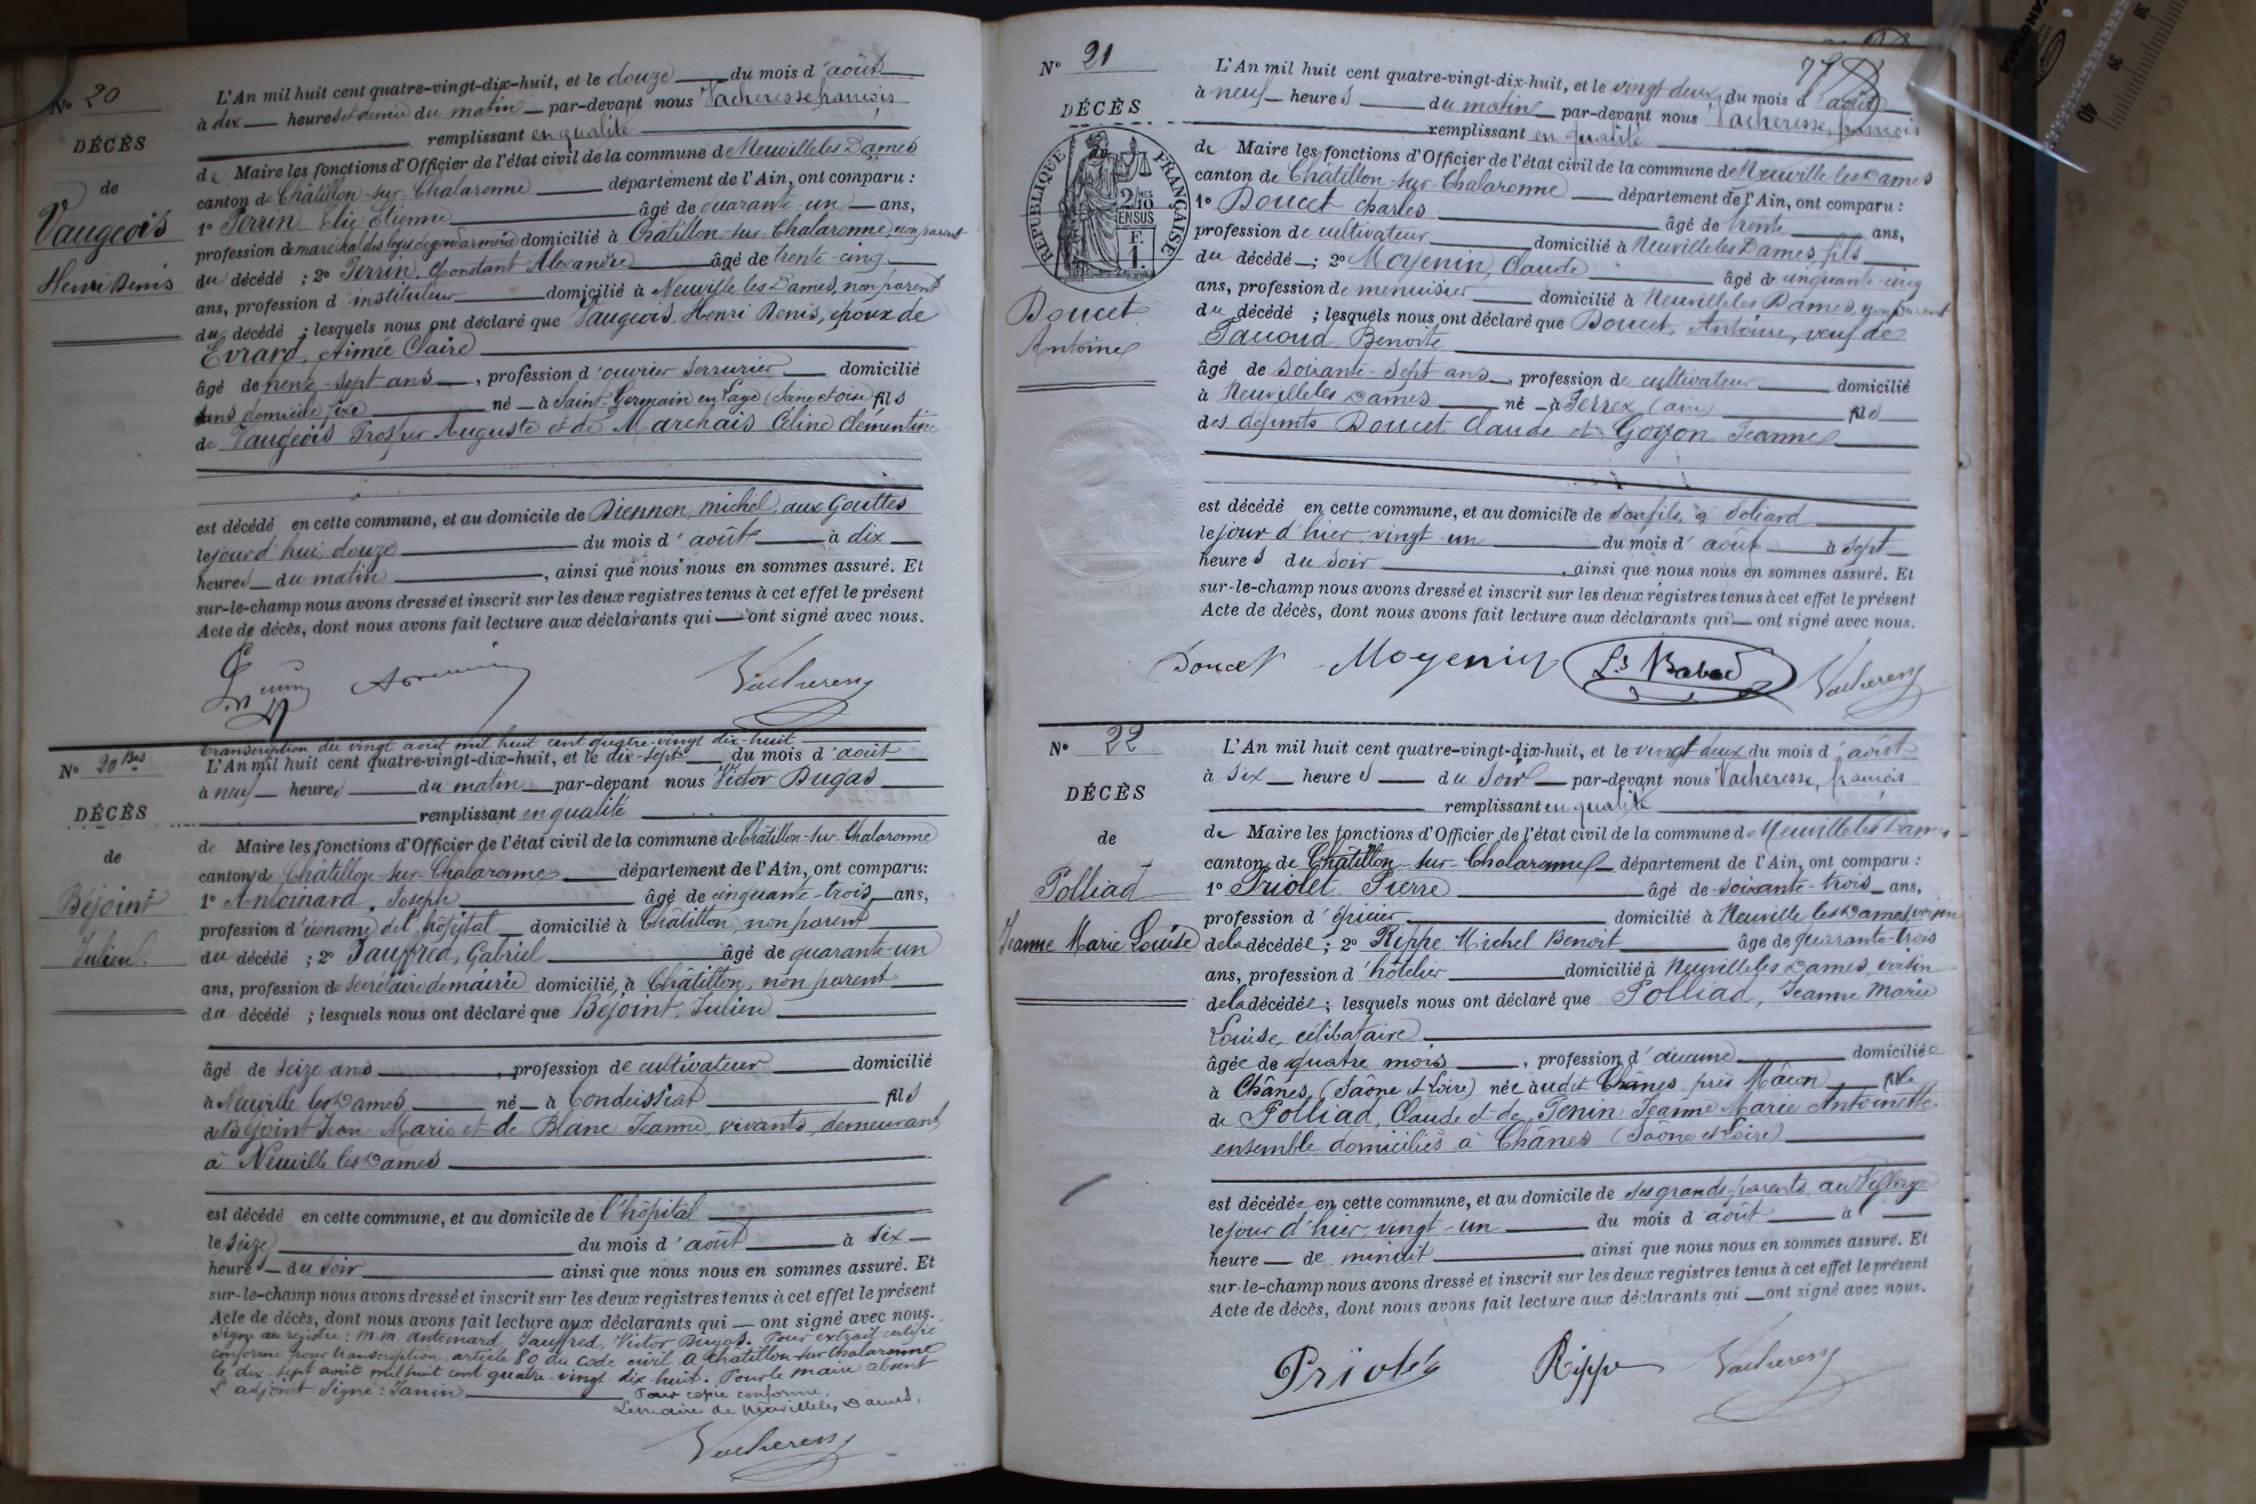 N° 20
DÉCÈS
de
Vaugeois
Henri Denis
L'An mil huit cent quatre-vingt-dix-huit, et le douze du mois d'août
à dix heures et demie du matin par-devant nous Vacheresse françois
remplissant en qualité
de Maire les fonctions d'Officier de l'état civil de la commune de Neuville les Dames
canton de Châtillon-sur-Chalaronne département de l'Ain, ont comparu :
1° Perrin Elie Etienne âgé de quarante-un ans,
profession de maréchal des logis de gendarmerie domicilié à Châtillon-sur-Chalaronne, non parent
du décédé ; 2° Perrin, Constant Alexandre âgé de trente-cinq
ans, profession d'instituteur domicilié à Neuville les Dames, non parent
du décédé ; lesquels nous ont déclaré que Vaugeois, Henri Denis, époux de
Evrard, Aimée Claire
âgé de trente-sept ans, profession d'ouvrier serrurier domicilié
sans domicile fixe né à Saint-Germain en Laye (Seine et oise) fils
de Vaugeois Prosper Auguste et de Marchais Céline Clémentine
est décédé en cette commune, et au domicile de Diennon, michel, aux Gouttes
le jour d'hui douze du mois d'août à dix
heures du matin, ainsi que nous nous en sommes assuré. Et
sur-le-champ nous avons dressé et inscrit sur les deux registres tenus à cet effet le présent
Acte de décès, dont nous avons fait lecture aux déclarants qui ont signé avec nous.
Vacheresse
N° 20 Bis
DÉCÈS
de
Béjoint
Julien.
Transcription du vingt aout mil huit cent quatre-vingt dix-huit
L'An mil huit cent quatre-vingt-dix-huit, et le dix-sept du mois d'août
à neuf heures du matin par-devant nous Victor Dugas
remplissant en qualité
de Maire les fonctions d'Officier de l'état civil de la commune de Châtillon-sur-Chalaronne
canton de Châtillon-sur-Chalaronne département de l'Ain, ont comparu:
1° Antoinard, Joseph âgé de cinquante-trois ans,
profession d'économe de l'hôpital domicilié à Châtillon, non parent
du décédé ; 2° Jauffred, Gabriel âgé de quarante-un
ans, profession de secrétaire de mairie domicilié à Châtillon, non parent
du décédé ; lesquels nous ont déclaré que Béjoint, Julien
âgé de seize ans, profession de cultivateur domicilié
à Neuville les Dames né à Condeissiat fils
de Béjoint Jean-Marie et de Blanc Jeanne, vivants, demeurant
à Neuville les Dames
est décédé en cette commune, et au domicile de l'hôpital
le seize du mois d'août à six
heures du soir ainsi que nous nous en sommes assuré. Et
sur-le-champ nous avons dressé et inscrit sur les deux registres tenus à cet effet le présent
Acte de décès, dont nous avons fait lecture aux déclarants qui ont signé avec nous.
Signé au registre : m.m. antoinard, Jauffred, Victor Dugas. Pour extrait certifié
conforme pour transcription, article 80 du code civil. A Châtillon-sur-Chalaronne
le dix-sept août mil huit cent quatre-vingt dix-huit. Pour le maire absent
L'adjoint Signé : Janin
Pour copie conforme,
Le maire de Neuville les Dames,
Vacheresse
N° 21
DÉCÈS
de
RÉPUBLIQUE FRANÇAISE
2/10 MES
EN SUS
F.
1.
Doucet
Antoine
L'An mil huit cent quatre-vingt-dix-huit, et le vingt deux du mois d'août
à neuf heures du matin par-devant nous Vacheresse, françois
remplissant en qualité
de Maire les fonctions d'Officier de l'état civil de la commune de Neuville les Dames
canton de Châtillon-sur-Chalaronne département de l'Ain, ont comparu :
1° Doucet Charles âgé de trente ans,
profession de cultivateur domicilié à Neuville les Dames, fils
du décédé ; 2° Moyenin, Claude âgé de cinquante-cinq
ans, profession de menuisier domicilié à Neuville les Dames, non parent
du décédé ; lesquels nous ont déclaré que Doucet, Antoine, veuf de
Benoite
âgé de soixante-sept ans, profession de cultivateur domicilié
à Neuville les Dames né à Perrex (ain) fils
des défunts Doucet Claude et Goyon Jeanne
est décédé en cette commune, et au domicile de son fils, à Soliard
le jour d'hier, vingt-un du mois d'août à sept
heures du soir, ainsi que nous nous en sommes assuré. Et
sur-le-champ nous avons dressé et inscrit sur les deux registres tenus à cet effet le présent
Acte de décès, dont nous avons fait lecture aux déclarants qui ont signé avec nous.
Doucet Moyenin Ls Babad Vacheresse
N° 22
DÉCÈS
de
Polliad
Jeanne Marie Louise
L'An mil huit cent quatre-vingt-dix-huit, et le vingt deux du mois d'août
à six heures du soir par-devant nous Vacheresse, françois
remplissant en qualité
de Maire les fonctions d'Officier de l'état civil de la commune de Neuville les Dames
canton de Châtillon-sur-Chalaronne département de l'Ain, ont comparu :
1° Priolet Pierre âgé de soixante-trois ans,
profession d'épicier domicilié à Neuville les Dames, voisin
de la décédée ; 2° Rippe Michel Benoit âgé de quarante-trois
ans, profession d'hôtelier domicilié à Neuville les Dames, voisin
de la décédée ; lesquels nous ont déclaré que Polliad, Jeanne Marie
Louise, célibataire
âgée de quatre mois, profession d'aucune domiciliée
à Chânes, (Saône et Loire) née audit Chânes près Mâcon fille
de Polliad, Claude et de Penin Jeanne Marie Antoinette
ensemble domiciliés à Chânes (Saône et Loire)
est décédée en cette commune, et au domicile de ses grands-parents, au Village
le jour d'hier vingt-un du mois d'août à
heure de minuit ainsi que nous nous en sommes assuré. Et
sur-le-champ nous avons dressé et inscrit sur les deux registres tenus à cet effet le présent
Acte de décès, dont nous avons fait lecture aux déclarants qui ont signé avec nous.
Priolet Rippe Vacheresse